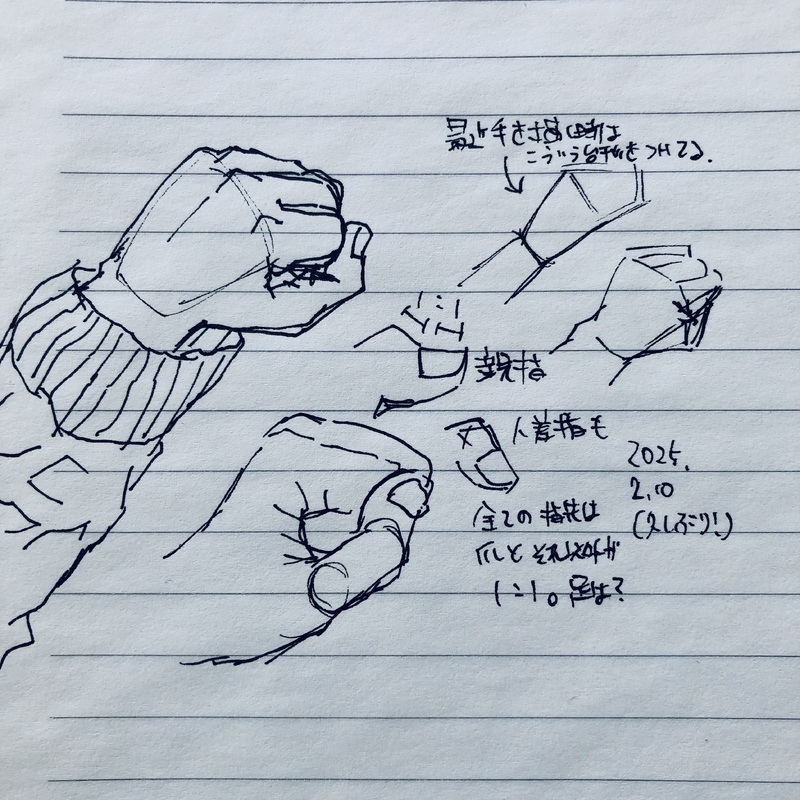 最近手を描く時は
こういう台形をつけてる。
1:1
親指
人差指も
全ての指先は
爪とそれ以外が
1:1。足は?
2025.
2.10
(久しぶり!)